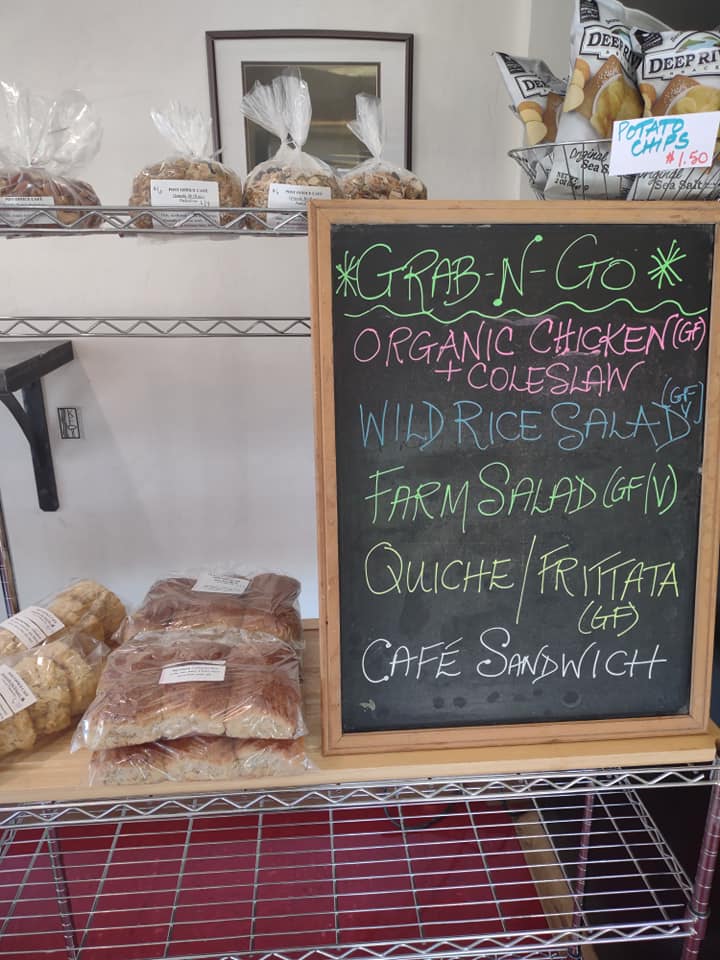 DEEP RIV
DEEP RIV
POTATO
CHIPS
$1.50
Original
Sea S
Original
Sea Salt
POST OFFICE CAFE
POST OFFICE CAFE
*GRAB-N-GO*
ORGANIC CHICKEN (GF)
+ COLESLAW
WILD RICE SALAD (GF/V)
FARM SALAD (GF/V)
QUICHE/FRITTATA
(GF)
CAFÉ SANDWICH